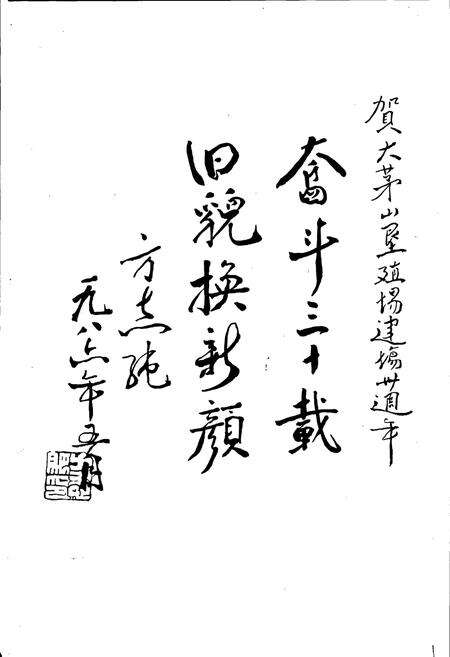 賀大茅山垦殖場建場卅週年
奋斗三十載
旧貌换新颜
方志纯
一九八六年五月